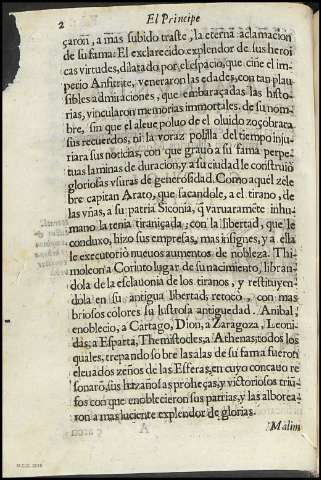 2
El Principe
çaron, a mas subido traste, la eterna aclamacion
de su fama: El exclarecido explendor de sus heroi
cas virtudes, dilatado por el espacio, que ciñe el im-
perio Anfitrite, veneraron las edades, con tan plau-
sibles admiraciones, que embaraçadas las histo-
rias, vincularon memorias immortales, de su nom-
bre, sin que el aleue poluo de el oluido zoçobrara
sus recuerdos, ni la voraz polilla del tiempo inju-
riara sus noticias, con que grauò a su fama perpe
tuas laminas de duracion, y a su ciudad le construiò
gloriosas vsuras de generosidad. Como aquel zele
bre capitan Arato, que sacandole, a el tirano, de
las vñas, a su patria Siconia, q̃ varuaramẽte inhu-
mano la tenia tiraniçada, con la libertad, que le
conduxo, hizo sus empresas, mas insignes, y a ella
le executoriò nueuos aumentos de nobleza. Thi-
moleon a Corinto lugar de su nacimiento, libran-
dola de la esclauonia de los tiranos, y restituyen-
dola en su antigua libertad, retocò, con mas
briosos colores su lustrosa antiguedad. Anibal
enoblecio, a Cartago, Dion, a Zaragoza, Leoni-
das, a Esparta, Themistocles, a Athenas, todos los
quales, trepando sobre las alas de su fama fueron
eleuados zeños de las Esferas, en cuyo concauo re
sonarõ, sus hazañosas proheças, y victoriosos triũ-
fos con que enoblecieron sus patrias, y las alborea-
ron a mas luciente explendor de glorias.
Malim